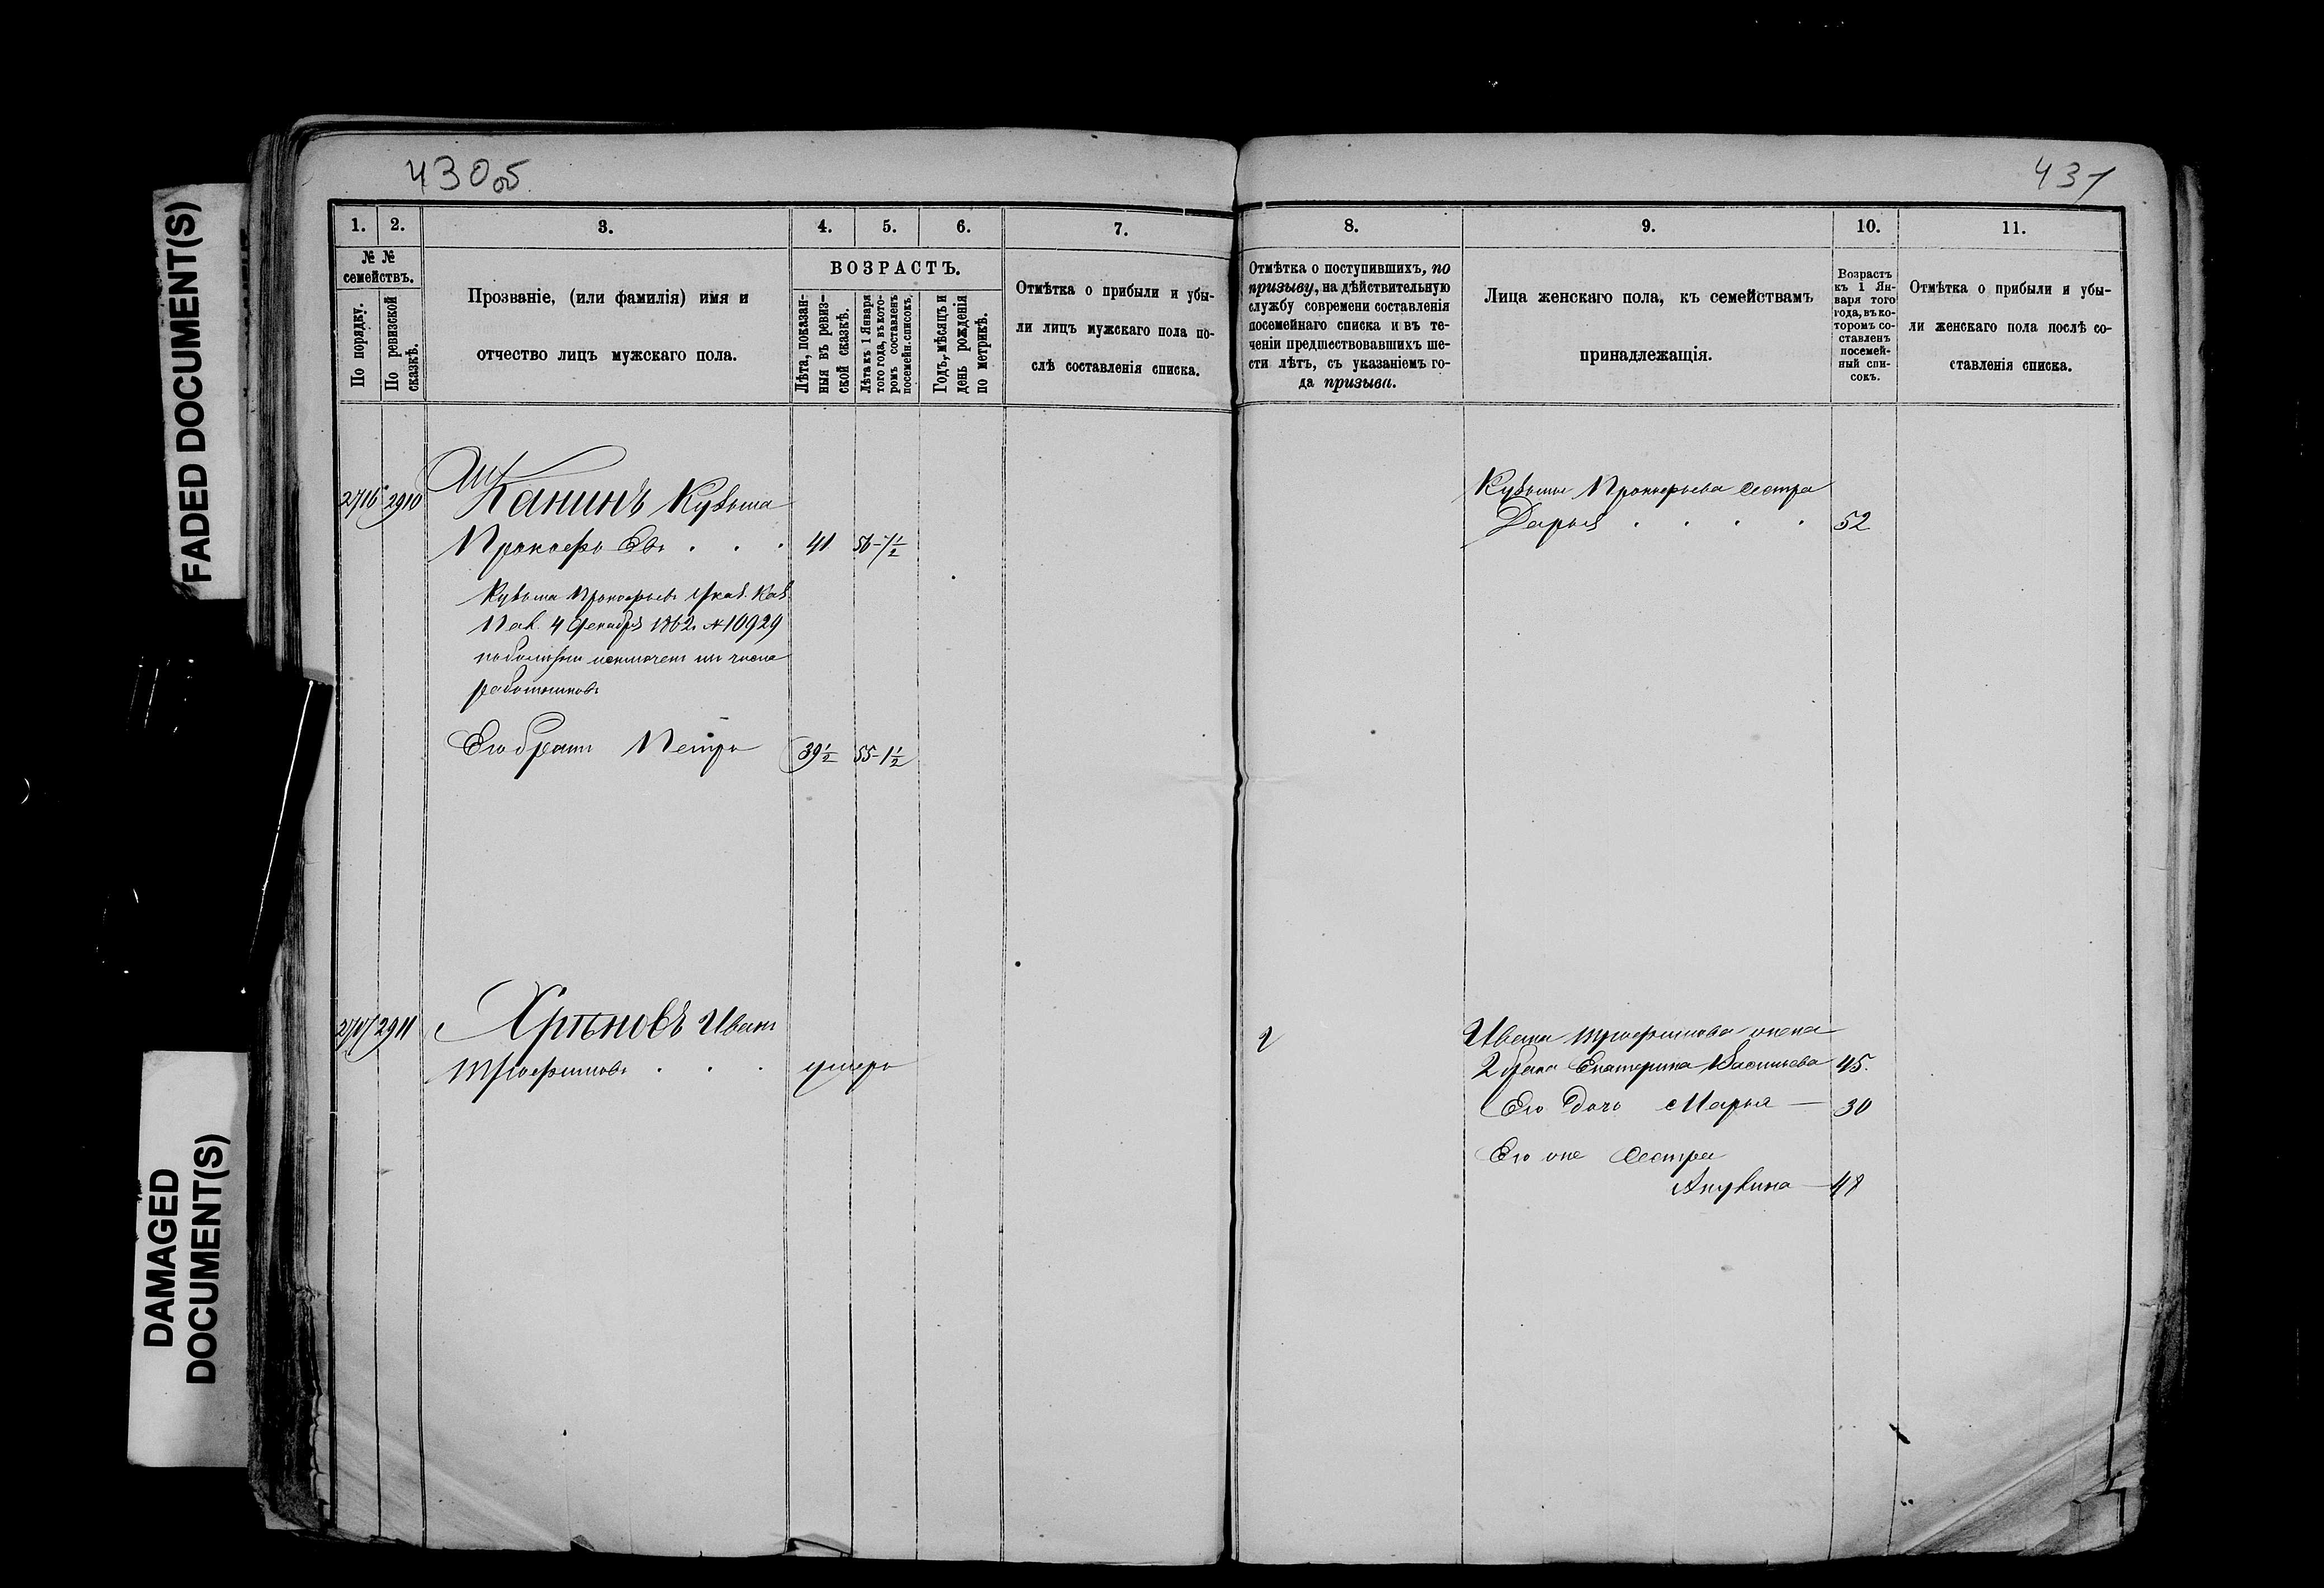 FADED DOCUMENT(S)
DAMAGED
DOCUMENT(S)
430об
1.
2.
3.
4.
5.
6.
7.
№ №
семействъ.
По порядку.
По ревизской
сказкѣ.
Прозваніе, (или фамилія) имя и
отчество лицъ мужскаго пола.
ВОЗРАСТЪ.
Лѣта, показан-
ныя въ ревиз-
ской сказкѣ.
Лѣта къ 1 Января
того года, въ кото-
ромъ составленъ
посемейн. списокъ.
Годъ, мѣсяцъ и
день рожденія
по метрикѣ.
Отмѣтка о прибыли и убы-
ли лицъ мужскаго пола по-
слѣ составленія списка.
2716 2910
Канинъ Кузьма
Прокофьевъ 41 56-7½
Кузьма Прокофьевъ Указ. Каз.
Пал. 4 Декабря 1862 №10929
исключенъ изъ числа
работниковъ
Его братъ Петръ 39½ 55-1½
2717 2911
Хрѣновъ Иванъ
Трофимовъ умеръ
431
8.
9.
10.
11.
Отмѣтка о поступившихъ, по
призыву, на дѣйствительную
службу современи составленія
посемейнаго списка и въ те-
ченіи предшествовавшихъ ше-
сти лѣтъ, съ указаніемъ го-
да призыва.
Лица женскаго пола, къ семействамъ
принадлежащія.
Возрастъ
къ 1 Ян-
варя того
года, въ ко-
торомъ со-
ставленъ
посемей-
ный спи-
сокъ.
Отмѣтка о прибыли и убы-
ли женскаго пола послѣ со-
ставленія списка.
Кузьмы Прокофьева сестра
Дарья 52
Ивана Трофимова жена
2 брака Екатерина Васильева 45.
Его дочь Марья — 30
Его же сестра
Акулина — 48